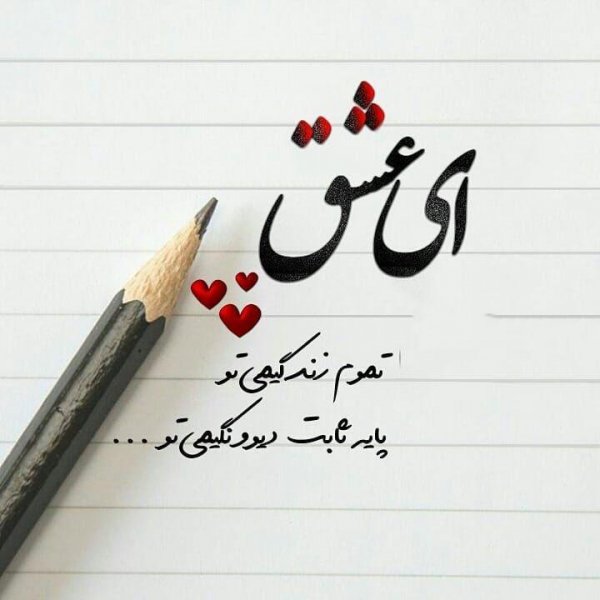 ای عشق
تموم زندگیمی تو
پایه ثابت دیوونگیمی تو ...